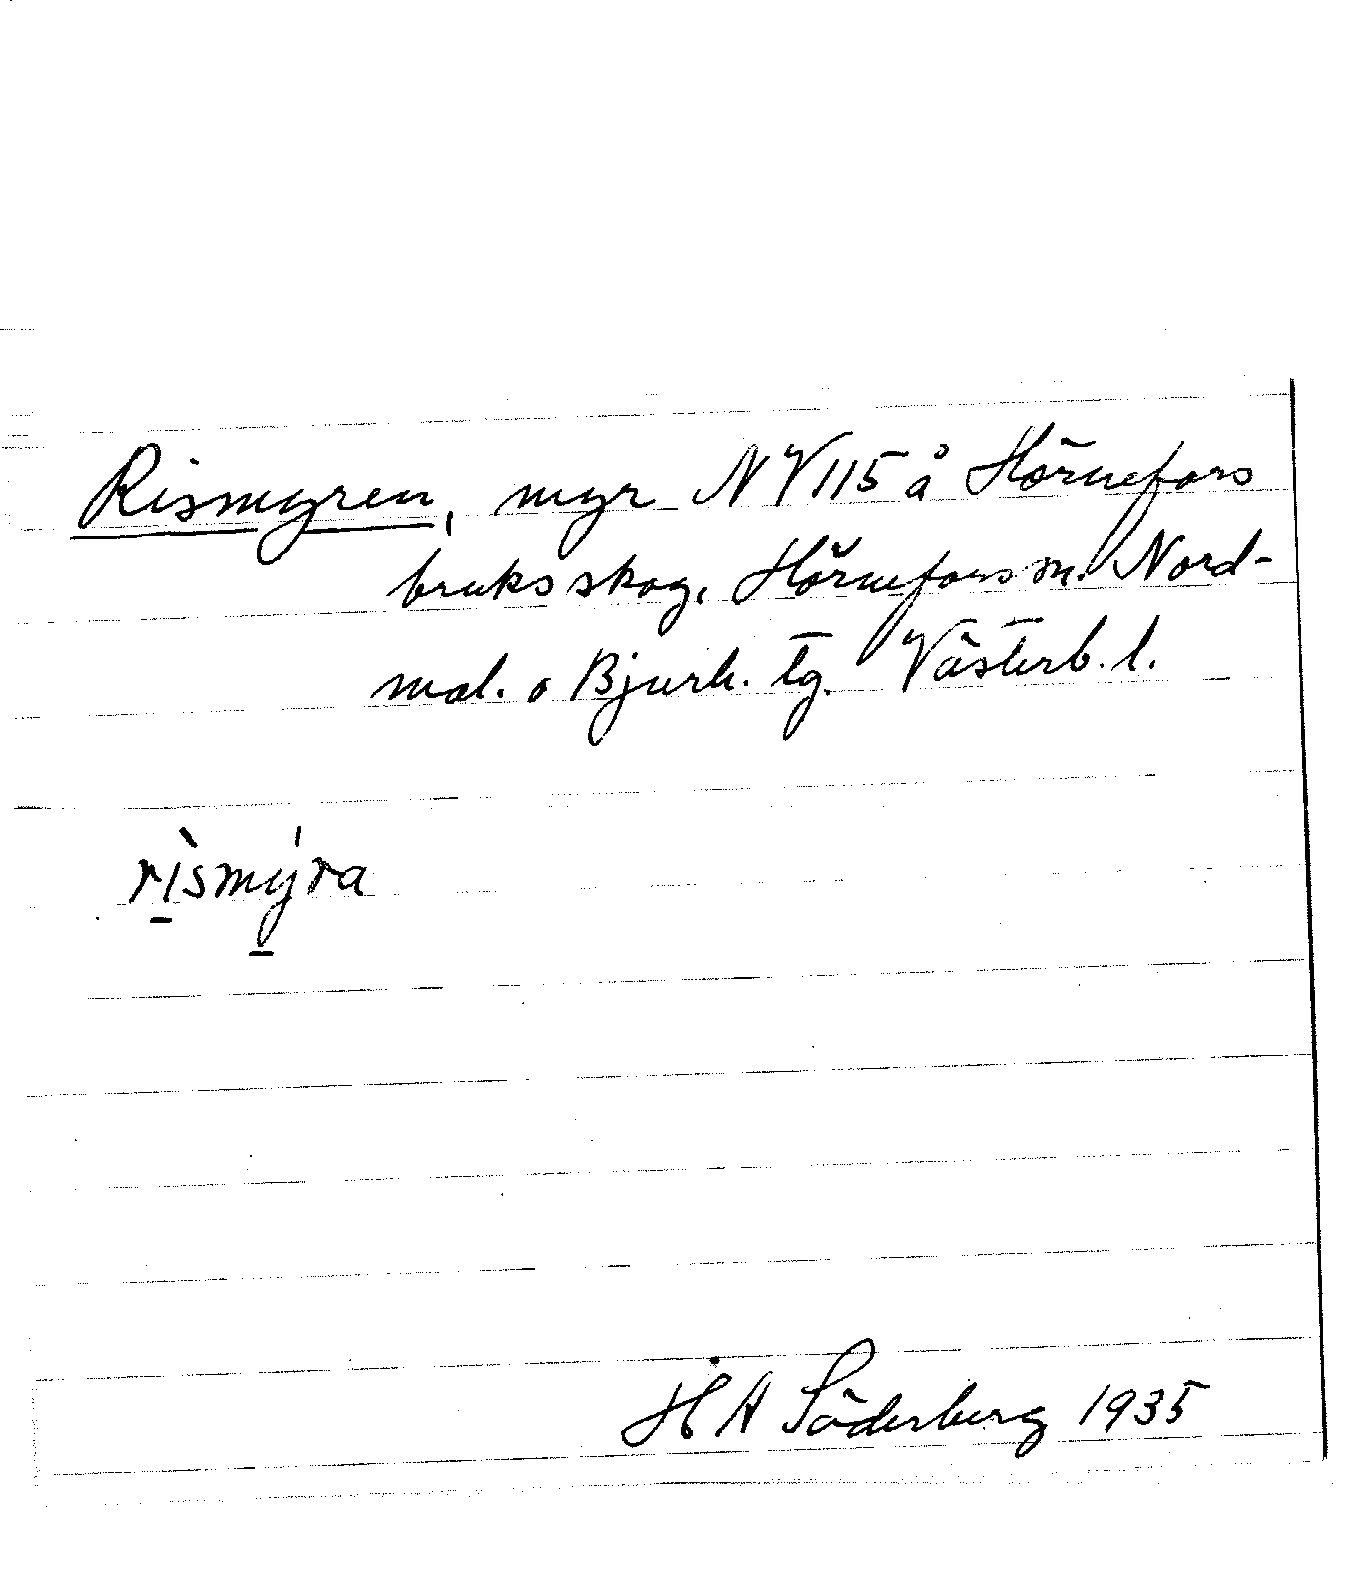 Rismyren, myr NV 115 å Hörnefors
bruks skog, Hörnefors sn. Nord-
mal. o Bjurh. tg. Västerb. l.
rı̱̀smý̱ra
H A Söderberg 1935